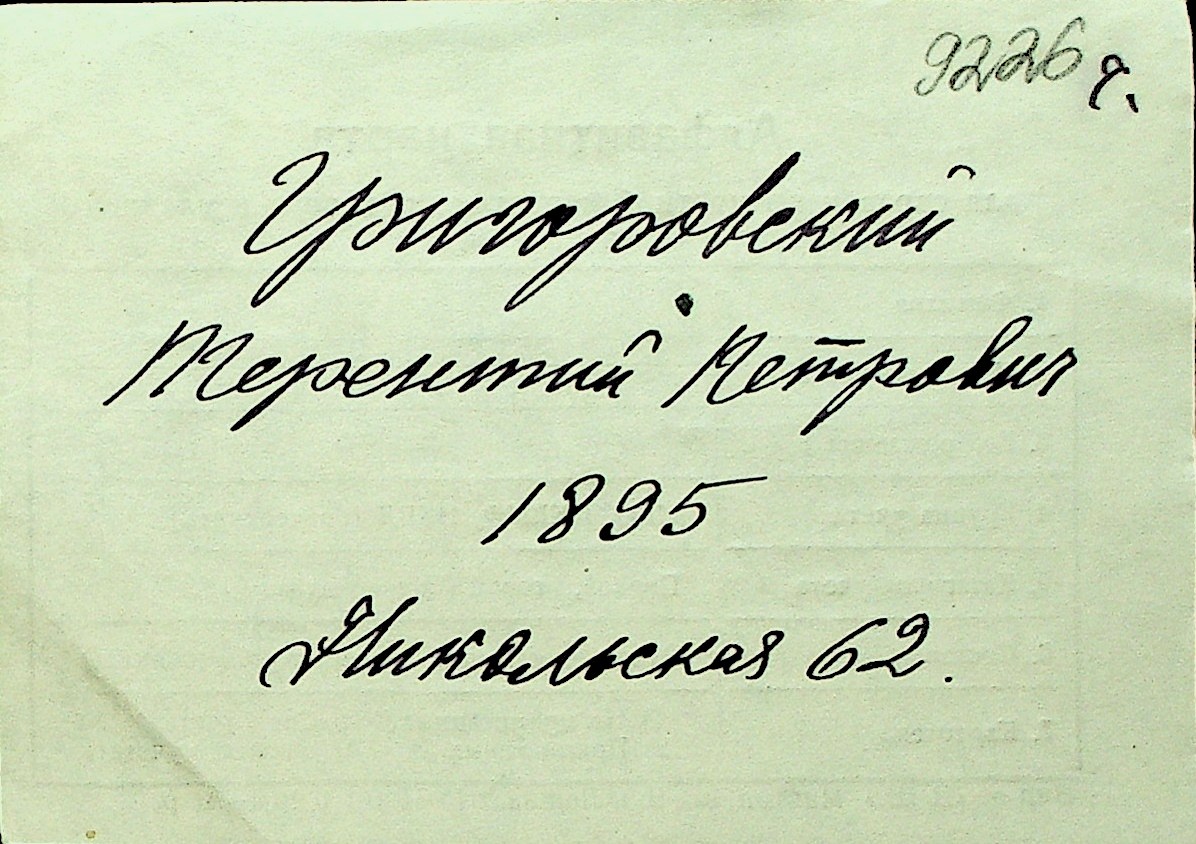 9226 г.
Григоровский
Терентий Петрович
1895
Никольская 62.